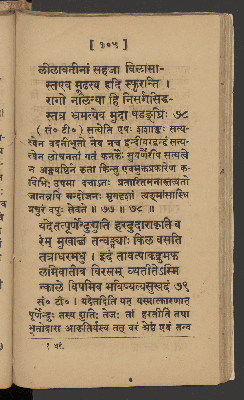 [ १०५ ]
लीलावतीनां सहजा विलासा-
स्तएव मूढस्य हृदि स्फुरन्ति ।
रागो नलिन्या हि निसर्गसिद्ध-
स्तत्र भ्रमत्येव मुदा षडङ्घ्रिः ७८
( सं० टी० ) सत्येति एषः शशाङ्कः सत्य-
त्वेन वदनीभूतो नैव नच इन्दीवरद्वन्द्वं सत्य-
त्वेन लोचनतां गतं कनकैः सुवर्णैरपि सत्यत्वे
न अङ्गयष्टिर्न कृता किन्तु एवमुक्तप्रकारेण क-
विभिः
जानन्नपि मन्दोजनः मृगदृशां त्वङ्मांसास्थि
प्रचुरं वपुः सेवते ॥ ७७ ॥ ७८ ॥
यदेतत्पूर्णेन्दुद्युति हरमुदाराकृति व
रं मुखाब्जं तन्वङ्ग्याः किल वसति
तत्राधरमधु । इदं तावत्पाकद्रुमफ
लमिवातीव विरसम् व्यतीतेऽस्मि
न्काले विषमिव भविष्यत्यसुखदं ७९
सं० टी० । यदेतदिति यत् यस्मात्कारणात्
पूर्णेन्दुः तस्य द्युतिः तेजः तां हरतीति तथा
भूतोदारा आकृतिर्यस्य तत् वरं श्रेष्ठं एवं तन्व